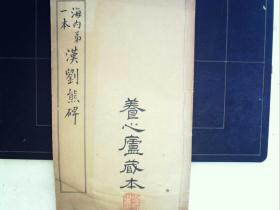 海内第一本
漢劉熊碑
養心廬藏本